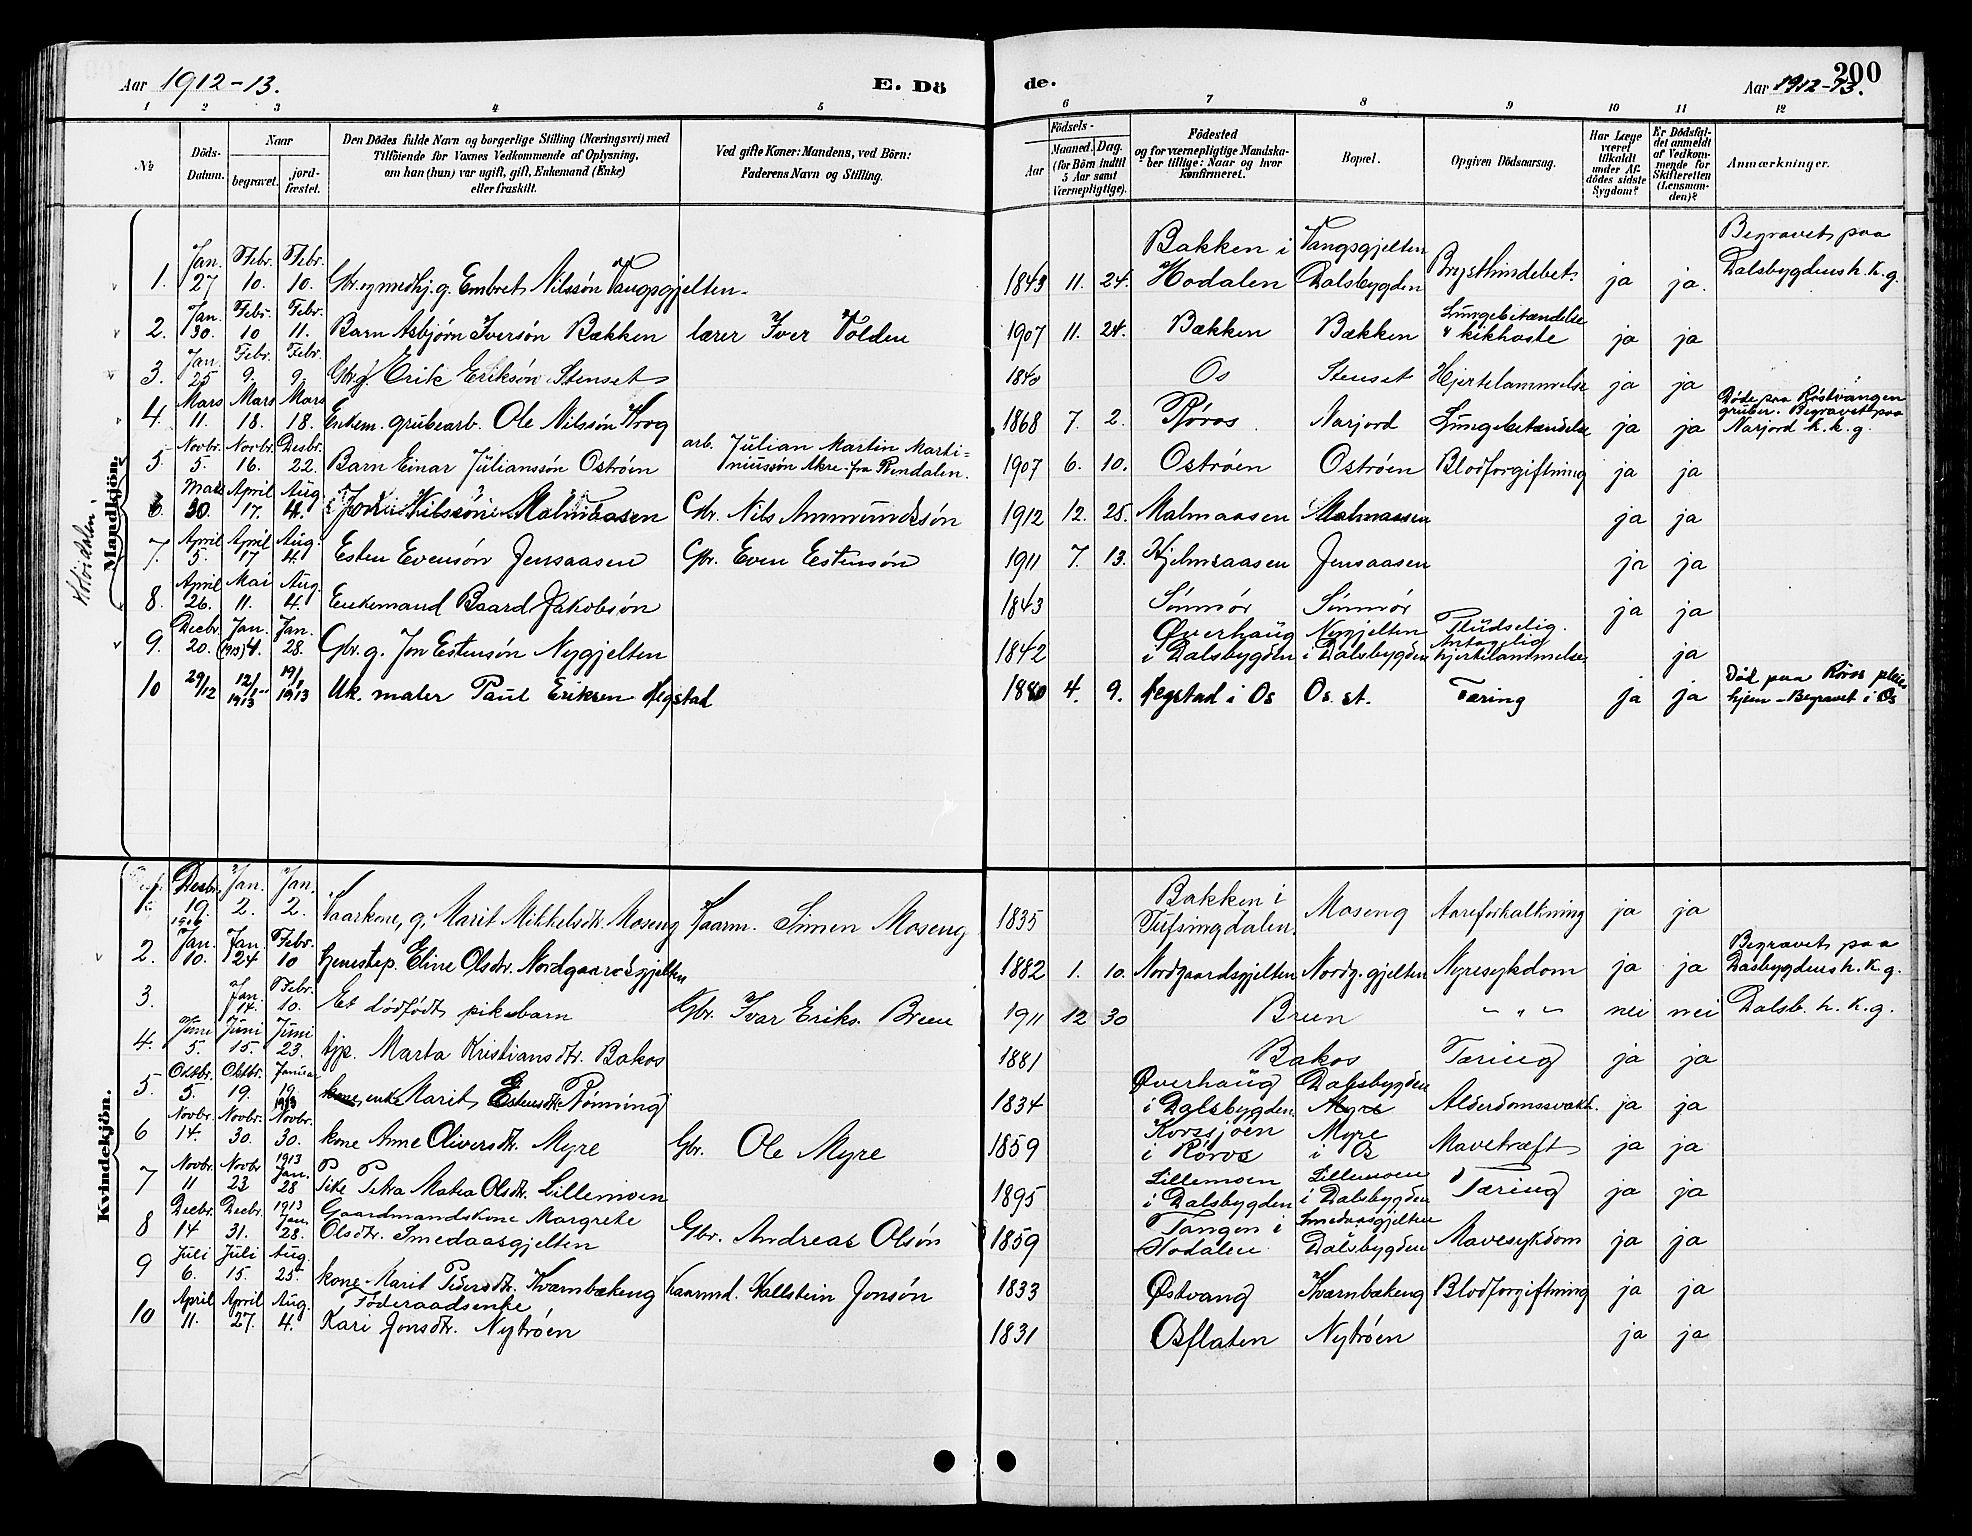 Aar 1912-13.
E. Dö
de.
200
Aar 1912-13.
1 2 3 4 5 6 7 8 9 10 11 12
No
Döds-Datum.
Naar
begravet.
jord-fæstet.
Den Dödes fulde Navn og borgerlige Stilling (Næringsvei) med
Tilföiende for Voxnes Vedkommende af Oplysning,
om han (hun) var ugift, gift, Enkemand (Enke)
eller fraskilt.
Ved gifte Koner: Mandens, ved Börn:
Faderens Navn og Stilling.
Födsels-
Aar
Maaned. Dag.
(for Börn indtil
5 Aar samt
Værnepligtige).
Födested
og for værnepligtige Mandska-
ber tillige: Naar og hvor
Konfirmeret.
Bopæl.
Opgiven Dödsaarsag.
Har Læge
været
tilkaldt
under Af-
dödes sidste
Sygdom?
Er Dödsfal-
det anmeldt
af Vedkom-
mende for
Skifteretten
(Lensman-
den)?
Anmærkninger.
Mandkjön.
1. Jan. 27 Febr. 10. Febr. 10. Gbr. g. Embret Nilssön Vangsgjelten 1843 11. 24. Bakken i Hodalen Vangsgjelten Dalsbygden Brysthindebet. ja ja. Begravet paa Dalsbygdens h. k. g.
2. Jan. 30. Febr. 10 Febr. 11. Barn Asbjörn Iversön Bækken lærer Iver Volden 1907 11. 24. Bækken Bækken Lungebetændelse & kikhoste ja ja
3. Jan. 25 Febr. 9. Febr. 9. Gbr. g. Erik Eriksön Stenset 1840 Os Stenset Hjertelammelse ja ja
4. Mars 11. Mars 18. Mars 18. Enkem. grubearb. Ole Nilssön Krog 1868 7. 2. Röros Narjord Lungebetændelse ja ja Döde paa Röstvangen gruber. Begravet paa Narjord h. k. g.
5 Novbr. 5. Novbr. 16. Desbr. 22. Barn Einar Julianssön Oströen arb. Julian Martin Martiniussön Akre fra Rendalen. 1907 6. 10. Oströen Oströen Blodforgiftning ja ja
6 Mars 30. April 17. Aug. 4. Malmaasen Gbr. Nils Ammundsön 1912 12. 25. Malmaasen Malmaasen ja ja
7. April 5. April 17 Aug. 4. Esten Evensön Jensaasen Gbr. Even Estensön 1911 7. 13. Hjelmsaasen Jensaasen ja ja
8. April 26. Mai 11. Aug. 4. Enkemand Baard Jakobsön 1843 Sönmör Sönmör ja ja
9. Decbr. 20. Jan. (1913) 4. Jan. 28. Gbr. g. Jon Estensön Nygjelten 1842 Øverhaug i Dalsbygden Nygjelten i Dalsbygden Pludselig. Antagelig hjertelammelse ja
10 29/12 12/1 1913 19/1 1913 Uk. maler Paul Eriksen Hegstad 1880 4. 9. Hegstad i Os Os. st. Tæring ja ja Död paa Röros pleiehjem - Begravet i Os
Kvindekjön.
1. Desbr. 19. Jan. 2. Jan. 2. Kaarkone, g. Marit Mikkelsdtr. Moseng Kaarm. Simen Moseng 1835 Bakken i Tufsingdalen. Moseng Aareforkalkning ja ja
2. Jan. 10. Jan. 24 Febr. 10 tjenestep. Eline Olsdtr. Nordgaardsgjelten 1882 1. 10. Nordgaardsgjelten Nordg. gjelten Nyresykdom ja ja Begravet paa Dasbygdens h. k. g.
3. Jan. 14. Febr. 10. Et dödfödt pikebarn Gbr. Ivar Eriks. Breen 1911 12 30 Breen " nei nei Dalsb. h. k. g.
4. Juni 5. Juni 15. Juni 23. tjp. Marta Kristiansdtr. Bakos 1881 Bakos Tæring ja ja
5 Oktbr. 5. Oktbr. 19. Januar 19 1913 kone, enke Marit Estensdtr. Rönning 1834 Øverhaug i Dalsbygden Dalsbygden Myre Alderdomssvakh. ja ja
6 Novbr. 14. Novbr. 30. Novbr. 30. kone Anne Oliversdtr. Myre Gbr. Ole Myre 1859 Korssjoen i Röros Myre i Os Mavekræft ja ja
7 Novbr. 11 Novbr 23 1913 Jan. 28 Pike Petra Matea Olsdtr. Lillemoen 1895 Lillemoen i Dalsbygden Lillemoen i Dalsbygden Tæring ja ja
8 Decbr. 14 Decbr. 31. 1913 Jan. 28. Gaardmandskone Margrete Olsdtr. Smedaasgjelten Gbr. Andreas Olsön 1859 Tangen i Hodalen Smedaasgjelten Dalsbygden Mavesykdom ja ja
9 Juli 6. Juli 15. Aug. 25. kone Marit Pedersdtr. Kværnbækeng Kaarmd. Hallstein Jonsön 1833 Østvang Kværnbækeng Blodforgiftning ja ja
10 April 11. April 27. Aug. 4. Föderaadsenke Kari Jonsdtr. Nytröen 1831 Osflaten Nytröen ja ja